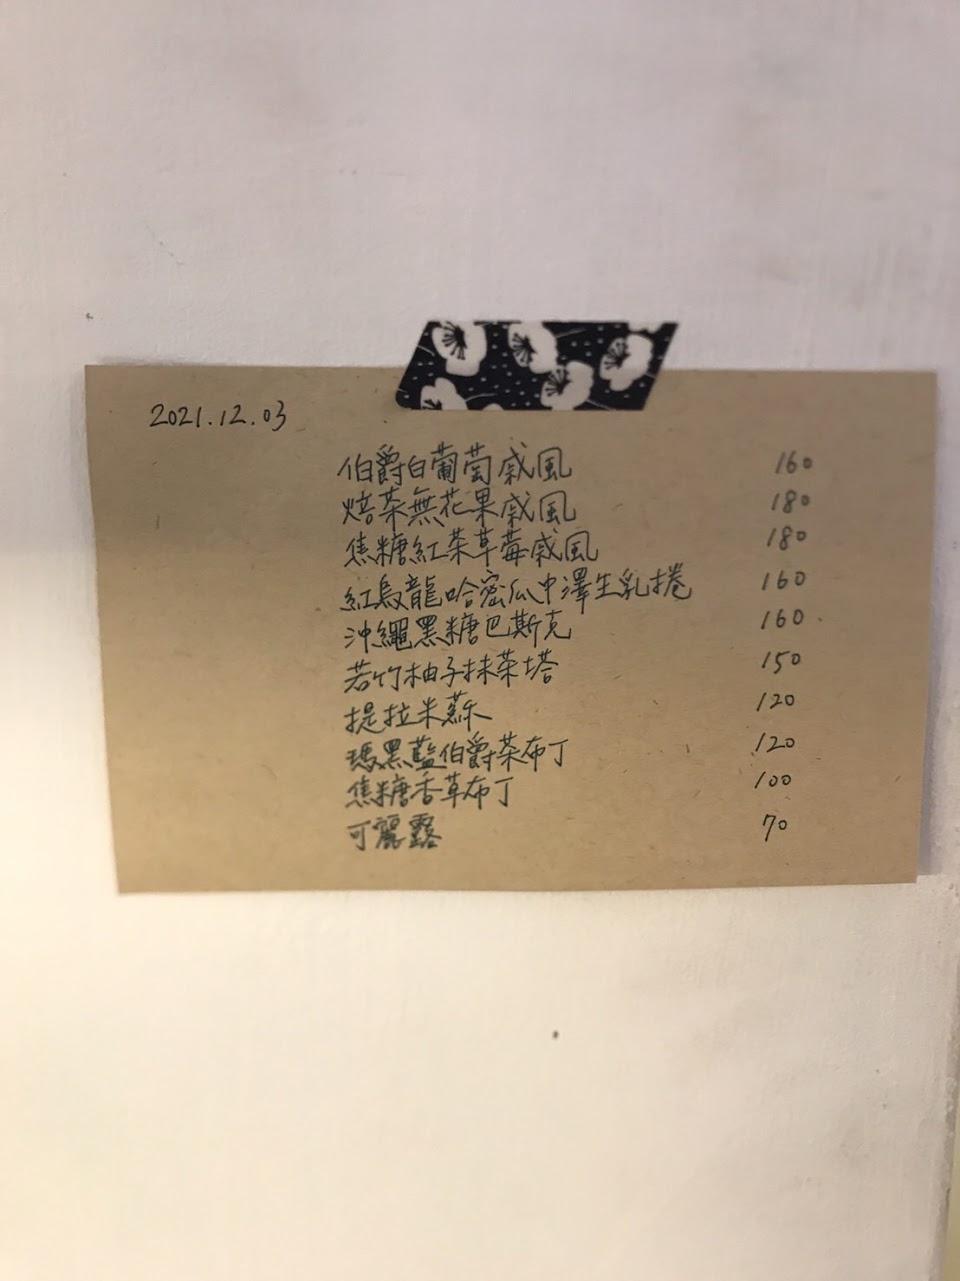 2021.12.03
伯爵白葡萄戚風 160
焙茶無花果戚風 180
焦糖紅茶草莓戚風 180
紅烏龍哈密瓜中澤生乳捲 160
沖繩黑糖巴斯克 160
若竹柚子抹茶塔 150
提拉米蘇 120
瑪黑藍伯爵茶布丁 120
焦糖香草布丁 100
可麗露 70